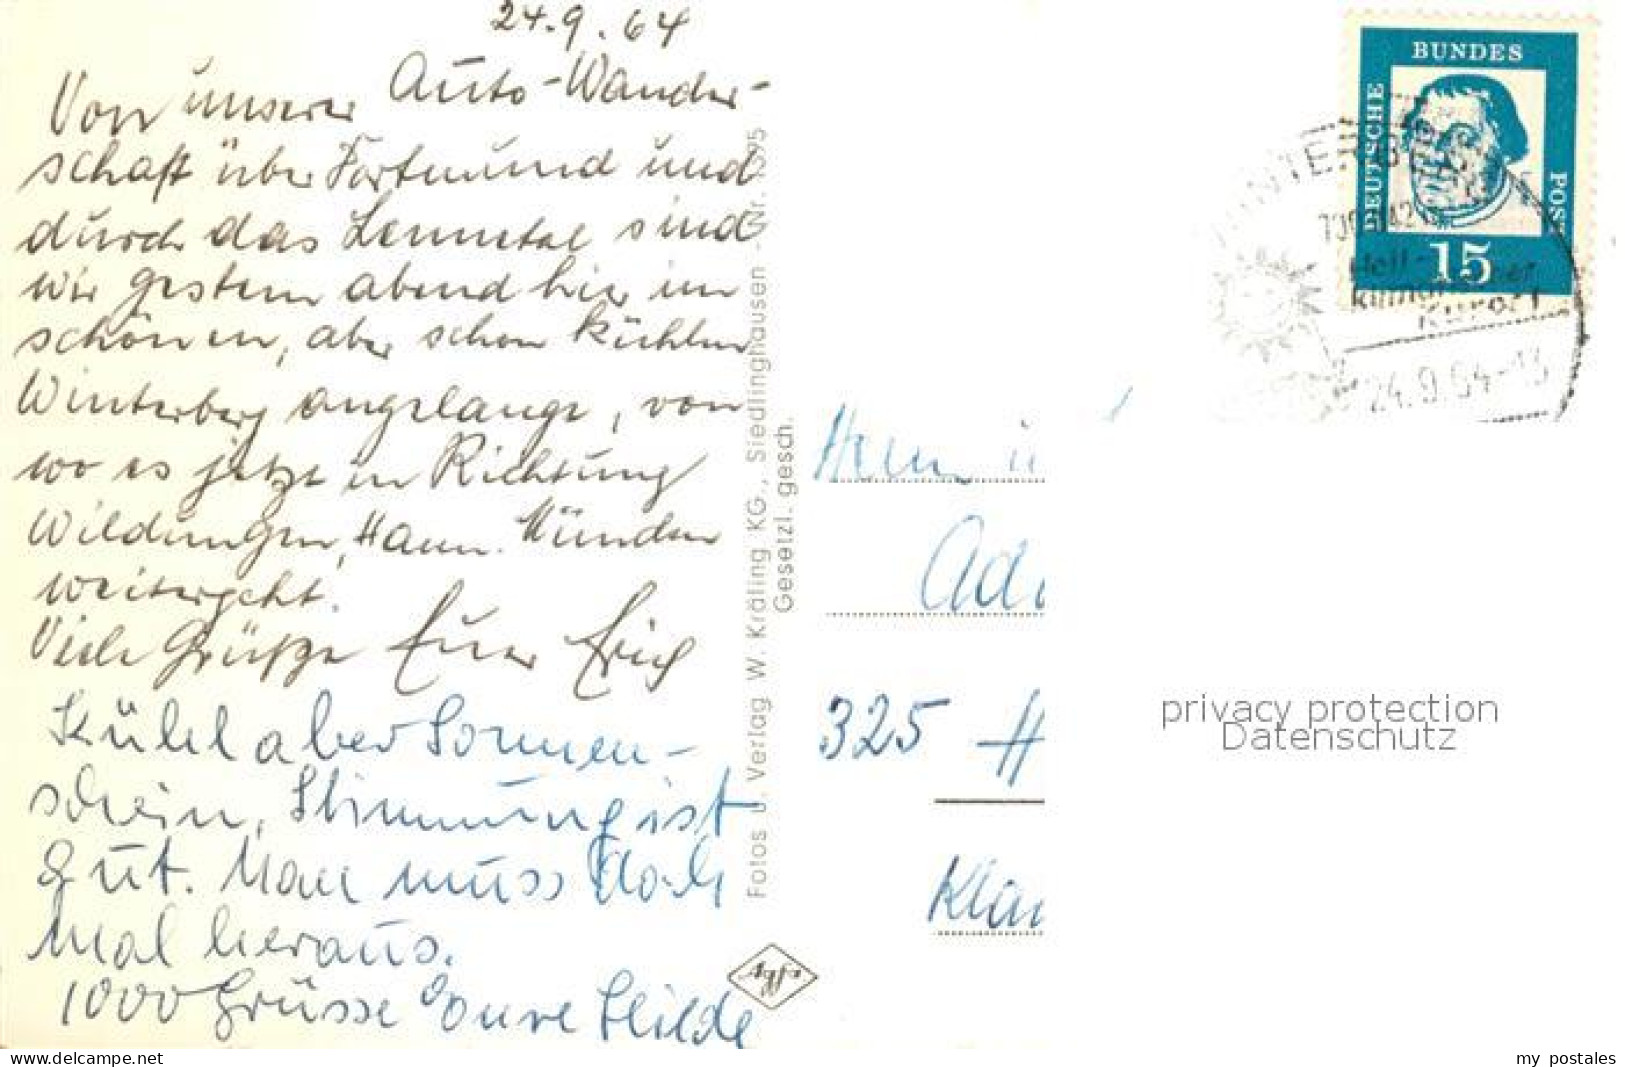 24.9.64
Von unserer Auto-Wander-
schaft über Dortmund und
durch das Lennetal sind
wir gestern abend hier im
schönen, aber schon kühlen
Winterberg angelangt, von
wo es jetzt in Richtung
Wildungen, Hann. Münden
weitergeht.
Viele Grüße Euer Erich
Kühl aber Sonnen-
schein, Stimmung ist
gut. Man muss doch
mal heraus.
1000 Grüsse Eure Hilde
Fotos u. Verlag W. Kräling KG., Siedlinghausen - Nr.
Gesetzl. gesch.
Agfa
DEUTSCHE BUNDES POST
15
WINTERBERG
Heil-
Kurort
24.9.64-13
325 H
privacy protection
Datenschutz
www.delcampe.net
my postales